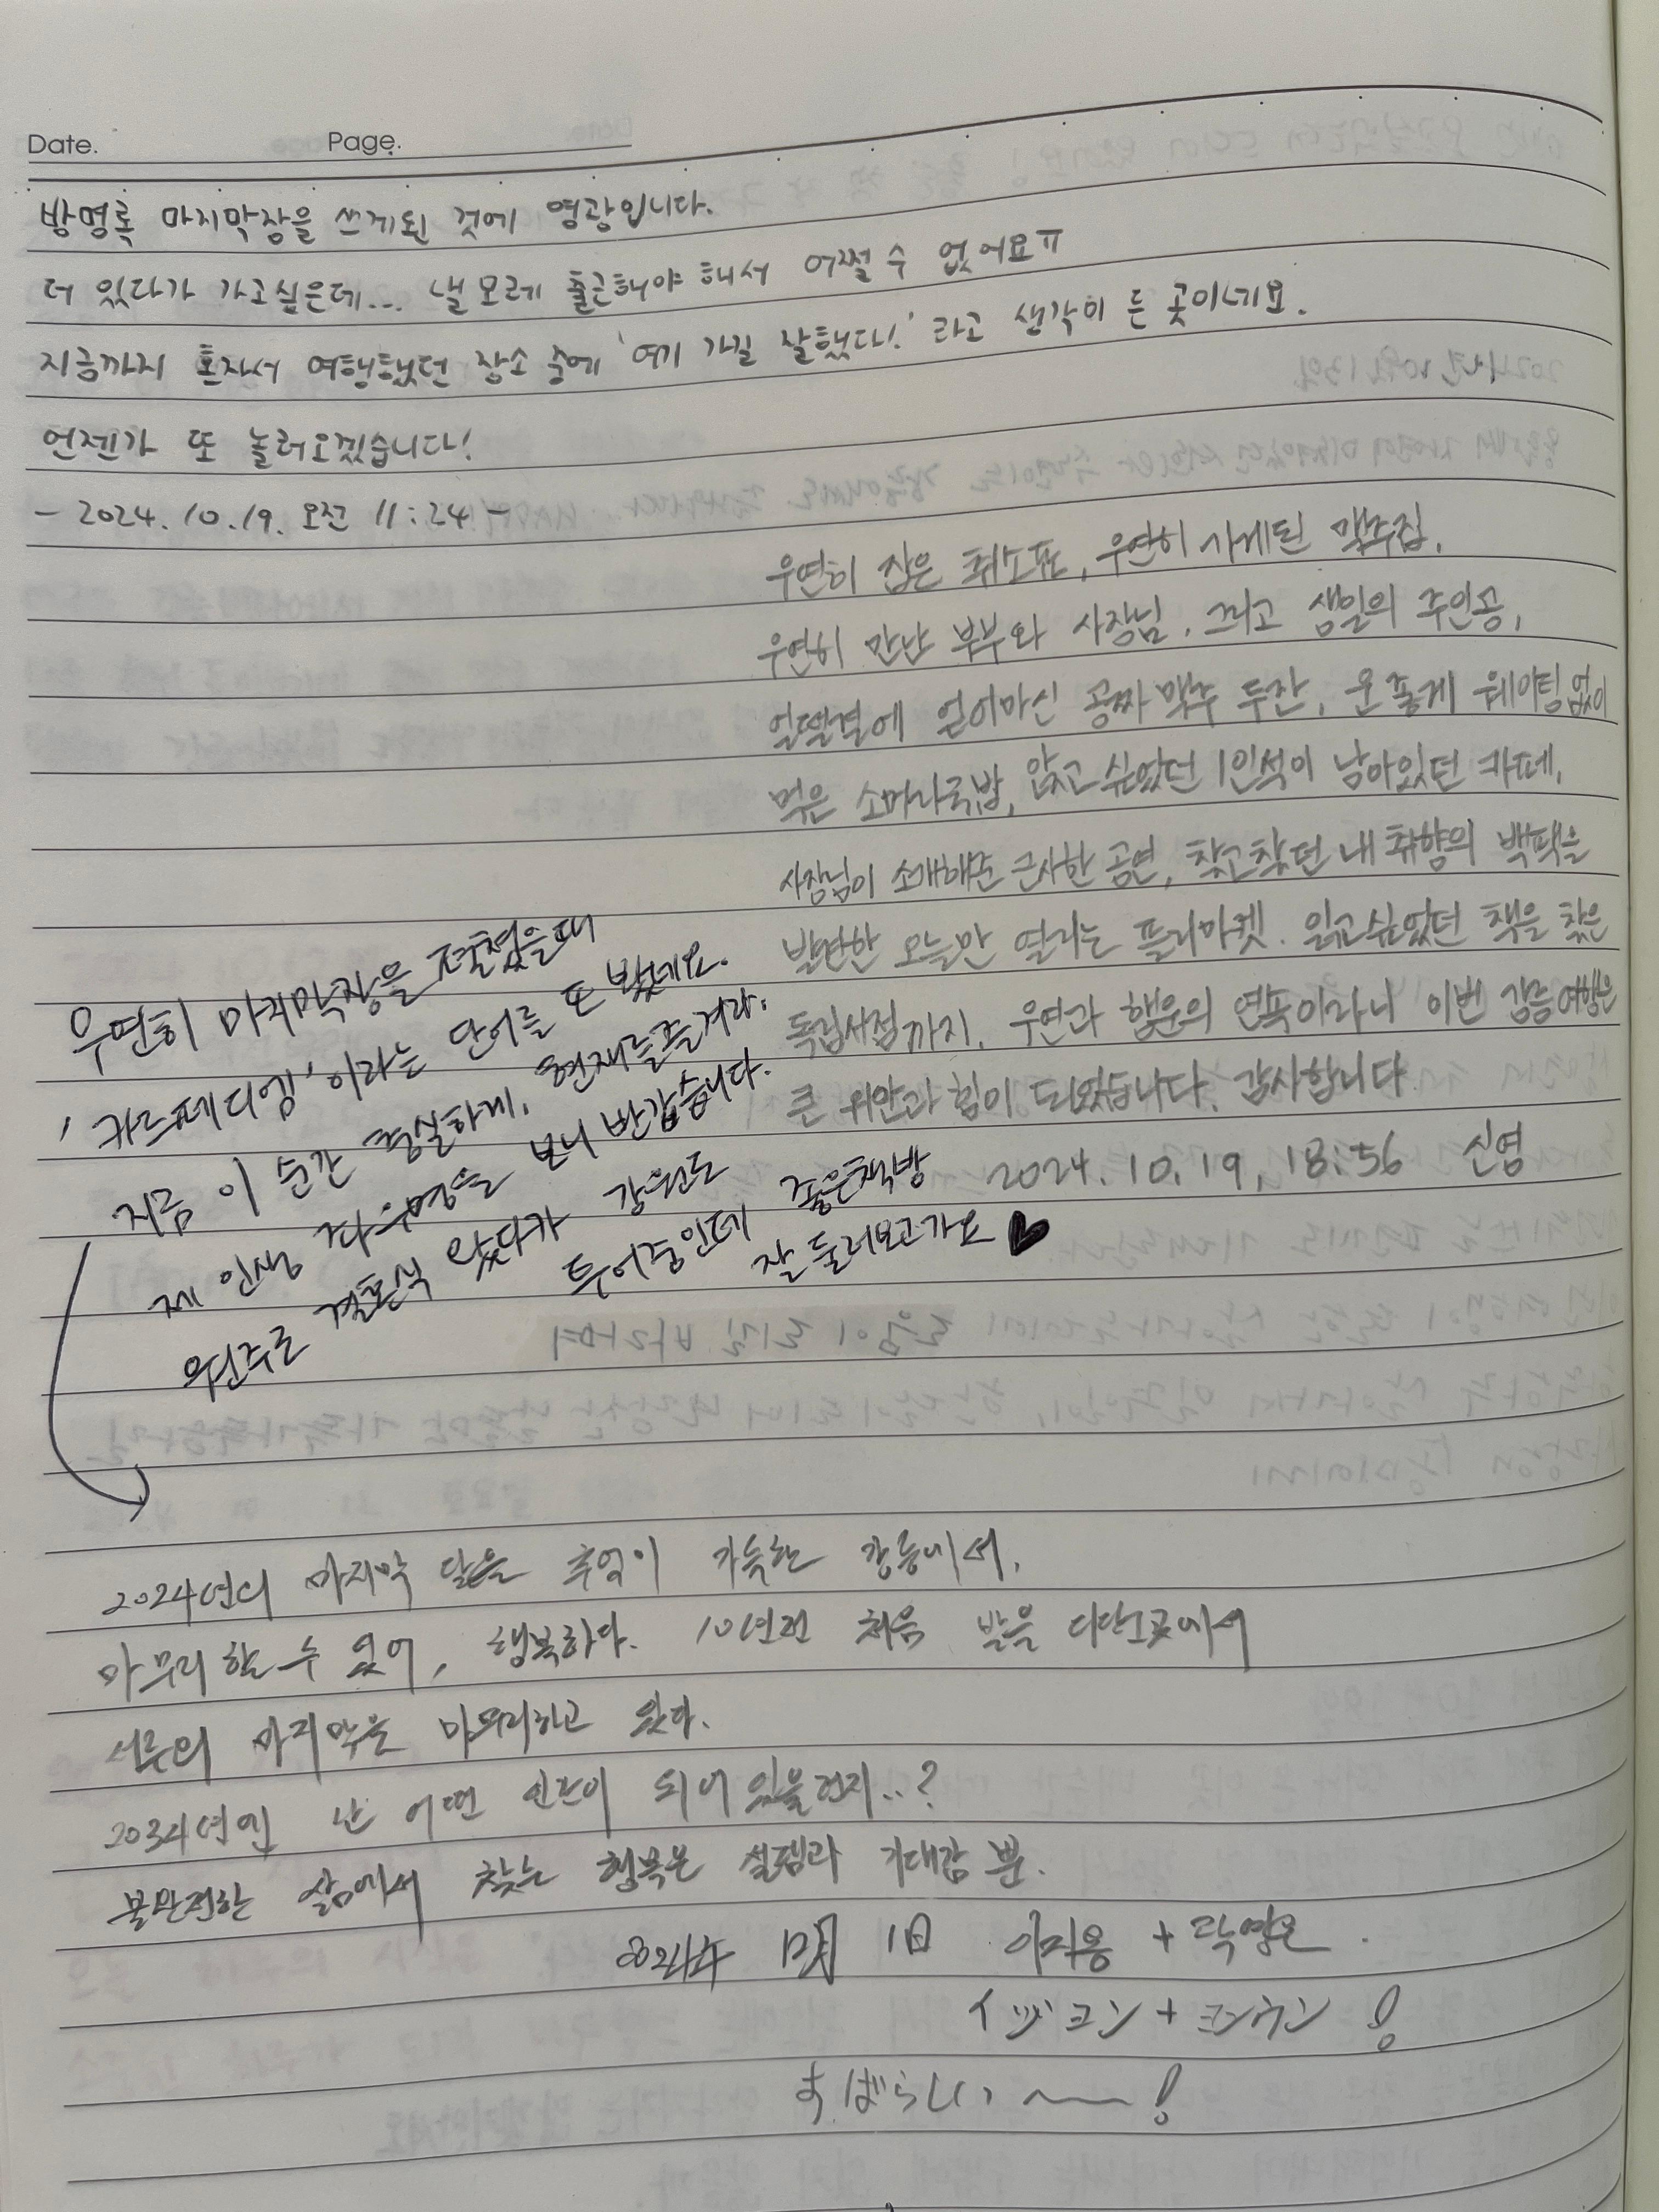 Date. Page.
방명록 마지막장을 쓰게된 것에 영광입니다.
더 있다가 가고싶은데... 낼 모레 출근해야 해서 어쩔 수 없어요ㅠ
지금까지 혼자서 여행했던 장소 중에 '여기 가길 잘했다!' 라고 생각이 든 곳이네요.
언젠가 또 놀러오겠습니다!
- 2024. 10. 19. 오전 11:24 -
우연히 잡은 취소표, 우연히 가게된 맥주집,
우연히 만난 부부와 사장님, 그리고 생일의 주인공,
얼떨결에 얻어마신 공짜 맥주 두잔, 운 좋게 웨이팅없이
먹은 소머리국밥, 앉고 싶었던 1인석이 남아있던 카페,
사장님이 소개해준 근사한 공연, 찾고찾던 내 취향의 백팩을
발견한 오늘만 열리는 플리마켓. 읽고싶었던 책을 찾은
독립서점까지. 우연과 행운의 연속이라니 이번 강릉여행은
큰 위안과 힘이 되었습니다. 감사합니다
2024. 10. 19, 18:56 신영
우연히 마지막장을 펼쳤을때
'카르페디엠'이라는 단어를 또 봤네요.
지금 이 순간 충실하게. 현재를즐겨라.
제 인생 좌우명을 보니 반갑습니다.
원주로 결혼식 왔다가 강원도
투어중인데 좋은책방
잘 둘러보고가요 ♥
2024년의 마지막 달을 추억이 가득한 강릉에서,
마무리 할 수 있어, 행복하다. 10년전 처음 발을 디딘그곳에서
서른의 마지막을 마무리하고 있다.
2034년엔 난 어떤 인간이 되어 있을런지..?
불완전한 삶에서 찾는 행복은 설렘과 기대감 뿐.
2024年 12月 1日 이지용 + 곽영은.
イジヨン + ヨンウン !
すばらしい 〜 !